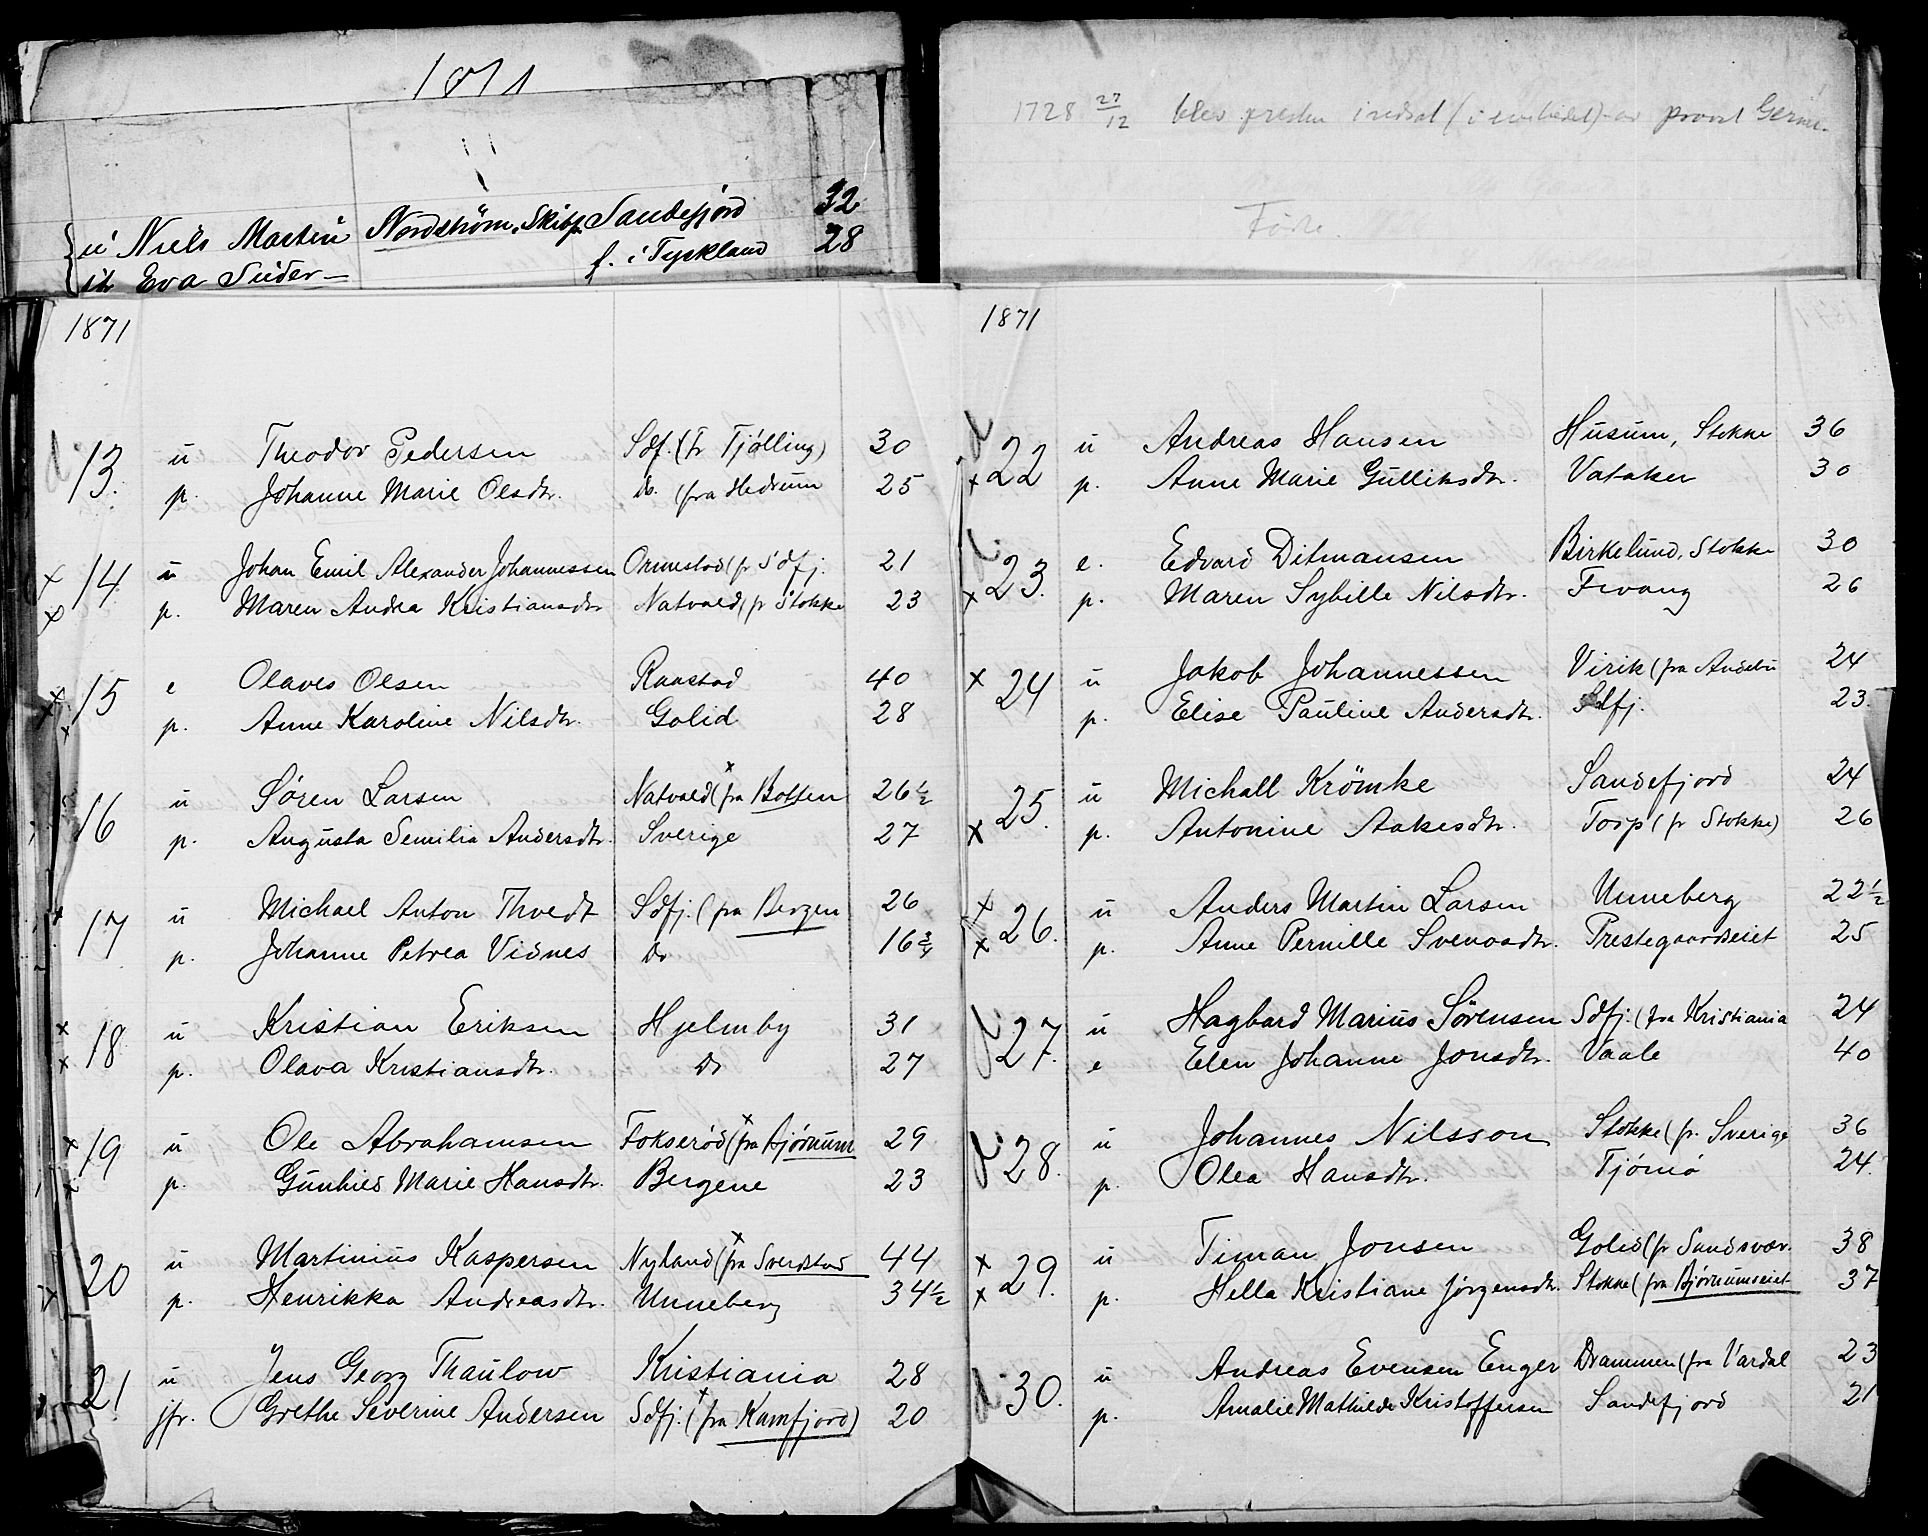 1871
u Niels Martin Nordström, Skibsf. Sandefjord 32
Eva Suder f. i Tyskland 28
1871
13. u Theodor Pedersen Sdf. (fr Tjølling) 30
p. Johanne Marie Olsdtr. do. (fra Hedrum 25
x 14 u Johan Emil Alexander Johannessen Ormestad (fr Sdfj. 21
x p. Maren Andrea Kristiansdtr Natvald (fr Stokke 23
x 15 e Olaves Olsen Raastad 40
x p. Anne Karoline Nilsdtr. Golid 28
16 u Søren Larsen Natvald (fra Botten 26½
p. Augusta Semilia Andersdtr. Sverige 27
17 u Michael Anton Thvedt Sdfj. (fra Bergen 26
p. Johanne Petrea Vidnes Do 16¾
x 18 u Kristian Eriksen Hjelmby 31
x p. Olava Kristiansdtr. Do 27
x 19 u Ole Abrahamsen Fokserød (fra Bjørnum 29
x p. Gunhild Marie Hansdtr. Bergene 23
20 u Martinius Kaspersen Nyland (fra Sverdstad 44
p. Henrikka Andreasdtr. Unneberg 34½
21 u Jens Georg Thaulow Kristiania 28
jfr. Grethe Severine Andersen Sdfj. (fra Kamfjord) 20
1728 27/12 blev presten indsat (i embedet) av provst
Fødte.
1871
22 u Andreas Hansen Husum, Stokke 36
x p. Anne Marie Gulliksdtr. Vataker 30
23. e. Edvard Ditmansen Birkelund, Stokke 30
x p. Maren Sybille Nilsdtr. Fevang 26
x 24 u Jakob Johannessen Virik (fra Andebu 24
p. Elise Pauline Andersdtr. Sdfj. 23.
25. u Michall Krömke Sandefjord 24
x p. Antonine Aakesdtr. Torp (fr Stokke) 26
x 26. u Anders Martin Larsen Unneberg 22½
x p. Anne Pernille Svenosdtr. Prestegaardseiet 25
27. u Hagbard Marius Sørensen Sdfj. (fra Kristiania 24
e Elen Johanne Jonsdtr. Vaale 40
28. u Johannes Nilsson Stokke (fr. Sverige 36
p. Olea Hansdtr. Tjømø 24.
x 29. u Timan Jonsen Golid (fr Sandsvær. 38
x p. Hella Kristiane Jørgensdtr. Stokke (fra Bjørnumseiet 37
30. u Andreas Evensen Enger Drammen (fra Vardal 23
p. Amalie Mathilde Kristoffersen Sandefjord 21